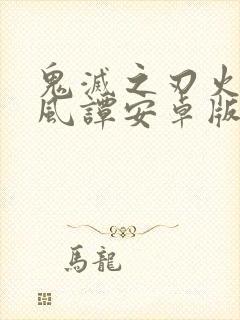 鬼滅之刃火
風譚安卓版
馬龍